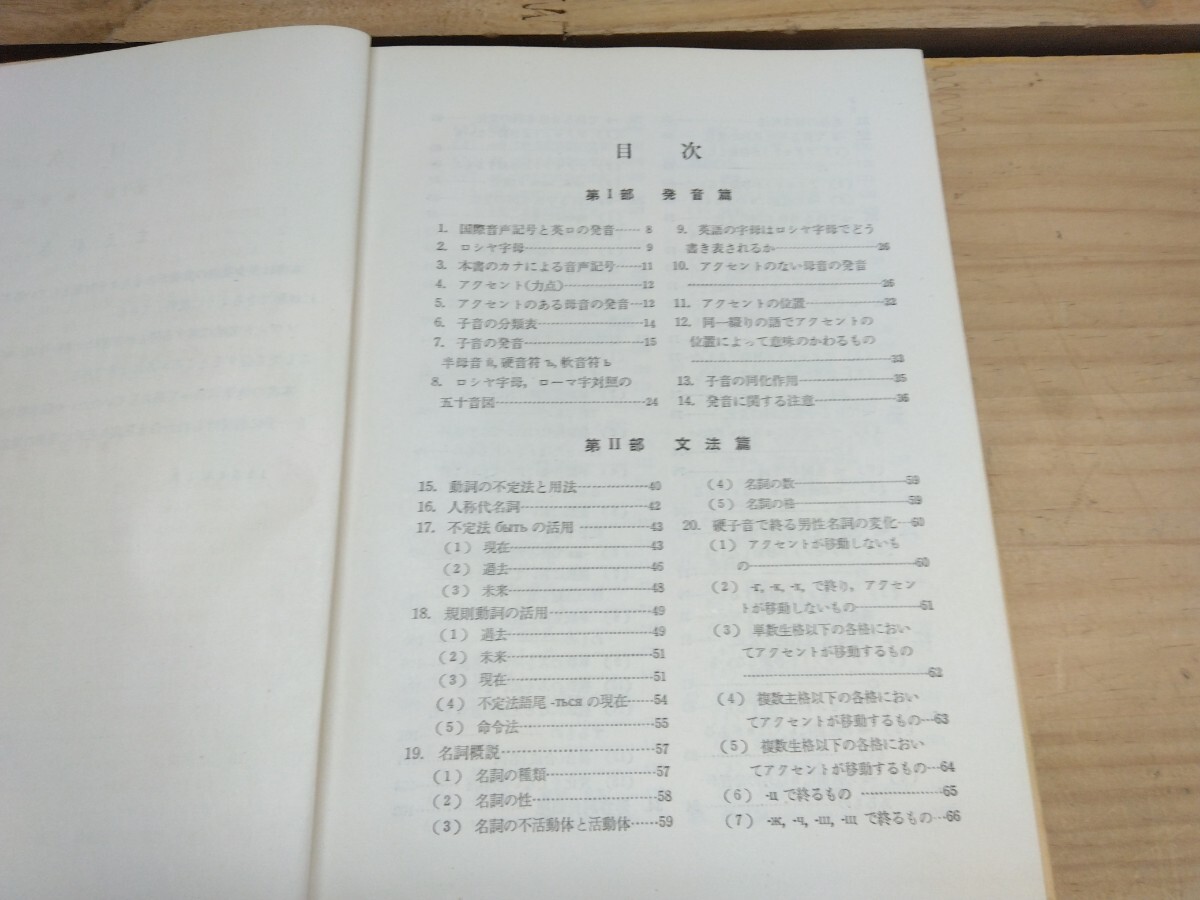 目次
第I部 発音篇
1. 国際音声記号と英ロの発音……8
2. ロシヤ字母……9
3. 本書のカナによる音声記号……11
4. アクセント(力点)……12
5. アクセントのある母音の発音…12
6. 子音の分類表……14
7. 子音の発音……15
半母音 й, 硬音符 ъ, 軟音符 ь
8. ロシヤ字母, ローマ字対照の
五十音図……24
9. 英語の字母はロシヤ字母でどう
書き表されるか……26
10. アクセントのない母音の発音
……26
11. アクセントの位置……32
12. 同一綴りの語でアクセントの
位置によって意味のかわるもの
……33
13. 子音の同化作用……35
14. 発音に関する注意……36
第II部 文法篇
15. 動詞の不定法と用法……40
16. 人称代名詞……42
17. 不定法 быть の活用……43
(1) 現在……43
(2) 過去……46
(3) 未来……48
18. 規則動詞の活用……49
(1) 過去……49
(2) 未来……51
(3) 現在……51
(4) 不定法語尾 -ться の現在……54
(5) 命令法……55
19. 名詞概説……57
(1) 名詞の種類……57
(2) 名詞の性……58
(3) 名詞の不活動体と活動体……59
(4) 名詞の数……59
(5) 名詞の格……59
20. 硬子音で終る男性名詞の変化…60
(1) アクセントが移動しないも
の……60
(2) -г, -к, -х, で終り, アクセン
トが移動しないもの……61
(3) 単数生格以下の各格におい
てアクセントが移動するもの
……62
(4) 複数主格以下の各格におい
てアクセントが移動するもの…63
(5) 複数生格以下の各格におい
てアクセントが移動するもの…64
(6) -ц で終るもの……65
(7) -ж, -ч, -ш, -щ で終るもの…66